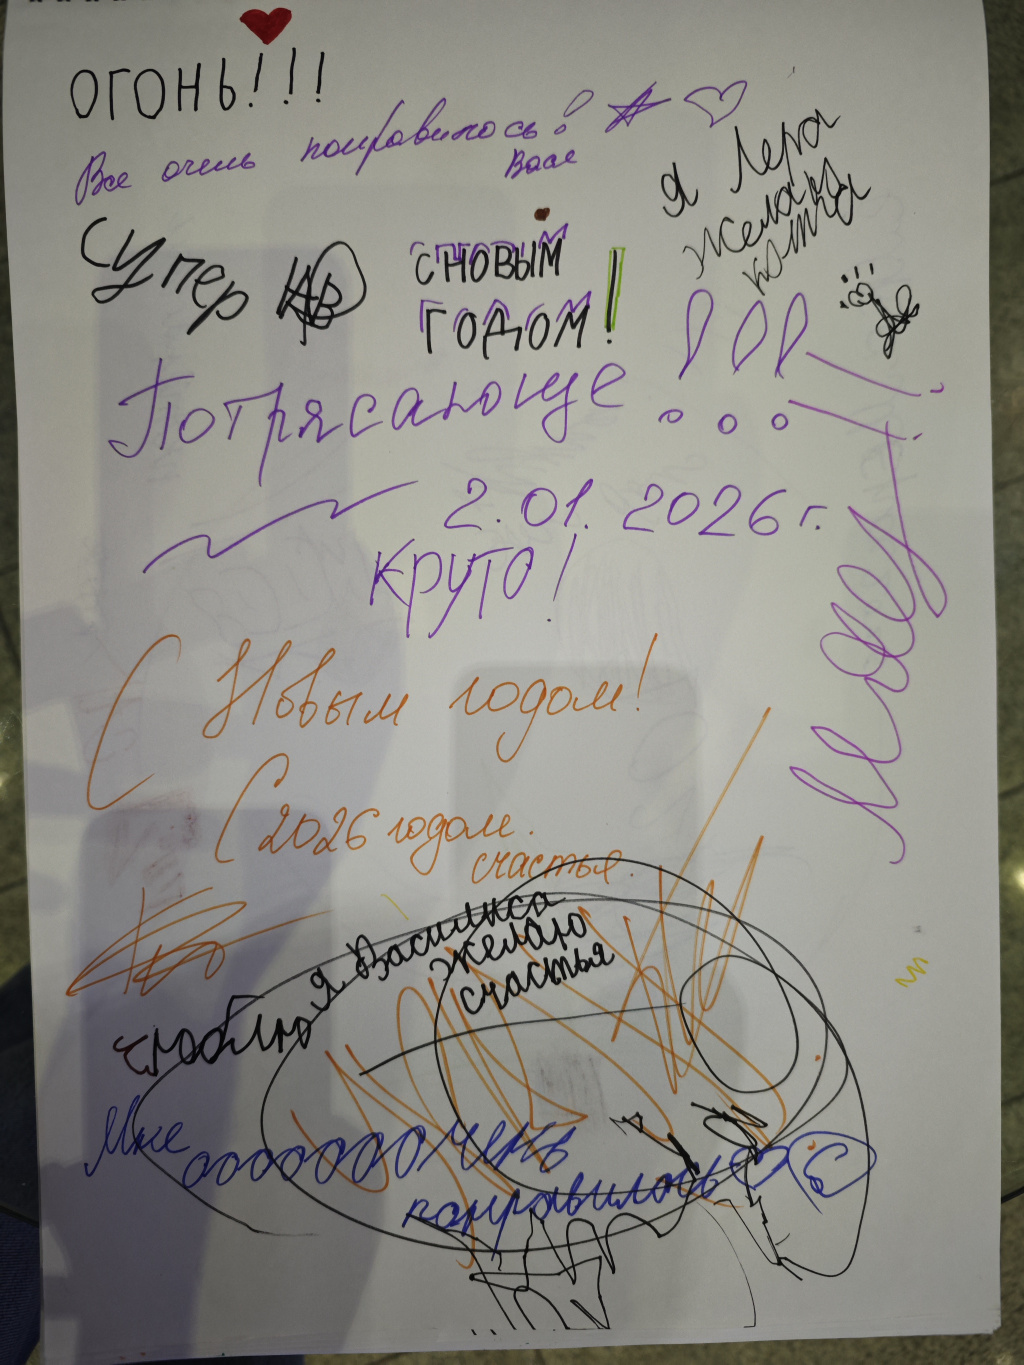 ОГОНЬ!!!
Все очень понравилось!
Васе
Я Лера
желаю
кота
Супер
С НОВЫМ
ГОДОМ!
Потрясающе!!!
2.01.2026 г.
КРУТО!
С Новым годом!
С 2026 годом.
счастья.
Я Василиса
желаю
счастья
люблю
Мне
ооооооочень
понравилось